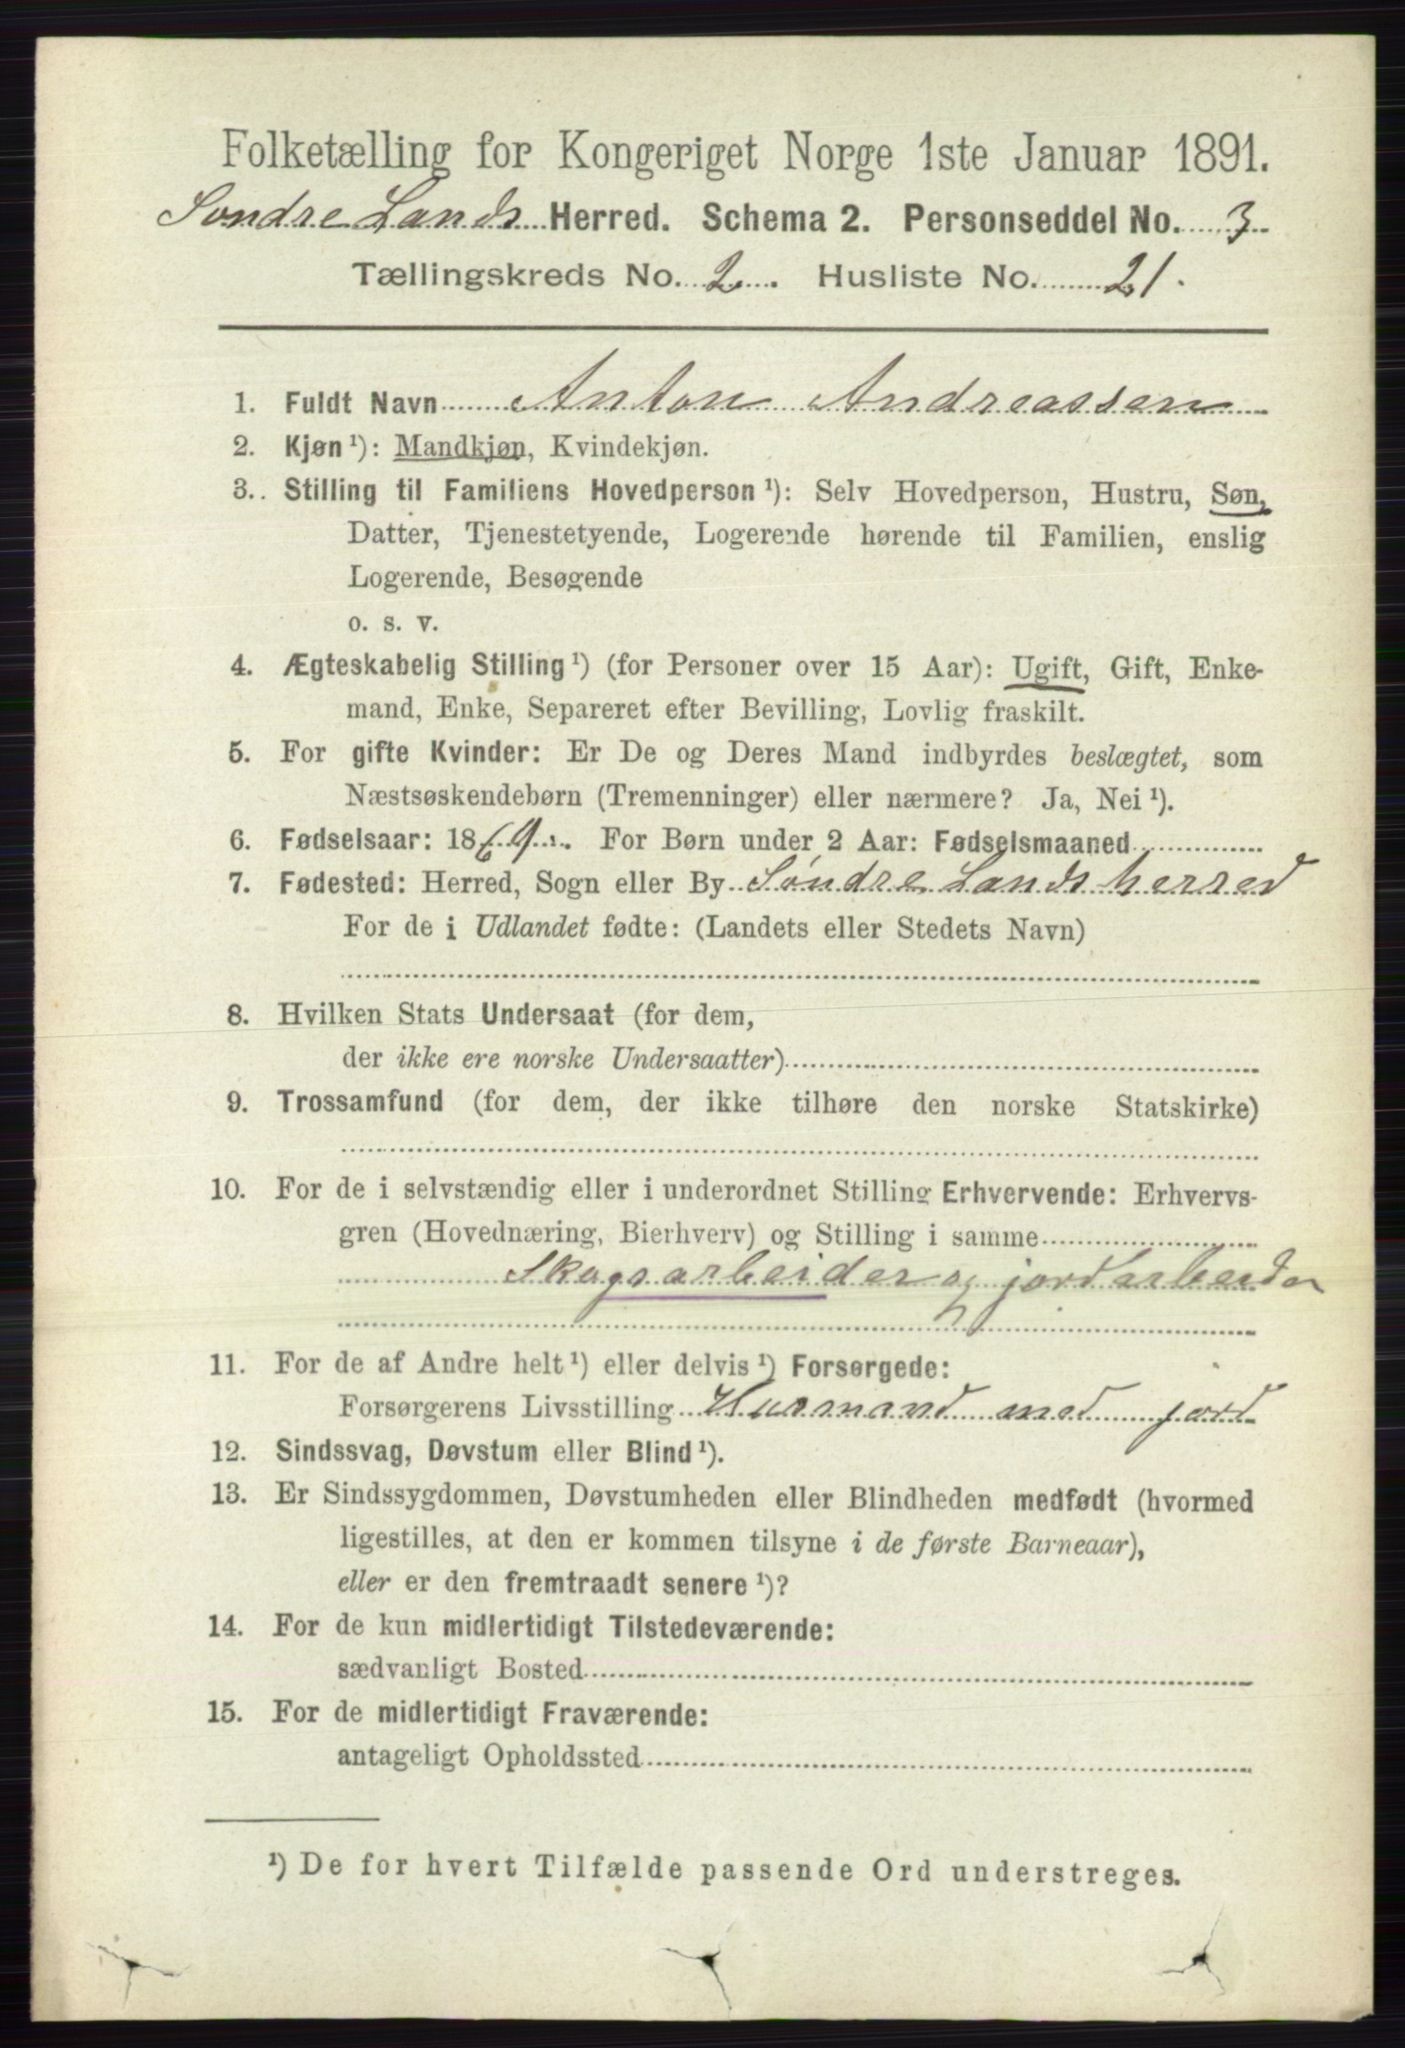 Folketælling for Kongeriget Norge 1ste Januar 1891.
Søndre Lands Herred. Schema 2. Personseddel No. 3
Tællingskreds No. 2. Husliste No. 21.
1. Fuldt Navn Anton Andreassen
2. Kjøn ¹): Mandkjøn, Kvindekjøn.
3. Stilling til Familiens Hovedperson ¹): Selv Hovedperson, Hustru, Søn,
Datter, Tjenestetyende, Logerende hørende til Familien, enslig
Logerende, Besøgende
o. s. v.
4. Ægteskabelig Stilling ¹) (for Personer over 15 Aar): Ugift, Gift, Enke-
mand, Enke, Separeret efter Bevilling, Lovlig fraskilt.
5. For gifte Kvinder: Er De og Deres Mand indbyrdes beslægtet, som
Næstsøskendebørn (Tremenninger) eller nærmere? Ja, Nei ¹).
6. Fødselsaar: 1869. For Børn under 2 Aar: Fødselsmaaned
7. Fødested: Herred, Sogn eller By Søndre Lands herred
For de i Udlandet fødte: (Landets eller Stedets Navn)
8. Hvilken Stats Undersaat (for dem,
der ikke ere norske Undersaatter)
9. Trossamfund (for dem, der ikke tilhøre den norske Statskirke)
10. For de i selvstændig eller i underordnet Stilling Erhvervende: Erhvervs-
gren (Hovednæring, Bierhverv) og Stilling i samme
Skogsarbeider og jordarbeider
11. For de af Andre helt ¹) eller delvis ¹) Forsørgede:
Forsørgerens Livsstilling Husmand med jord
12. Sindssvag, Døvstum eller Blind ¹).
13. Er Sindssygdommen, Døvstumheden eller Blindheden medfødt (hvormed
ligestilles, at den er kommen tilsyne i de første Barneaar),
eller er den fremtraadt senere ¹)?
14. For de kun midlertidigt Tilstedeværende:
sædvanligt Bosted
15. For de midlertidigt Fraværende:
antageligt Opholdssted
¹) De for hvert Tilfælde passende Ord understreges.